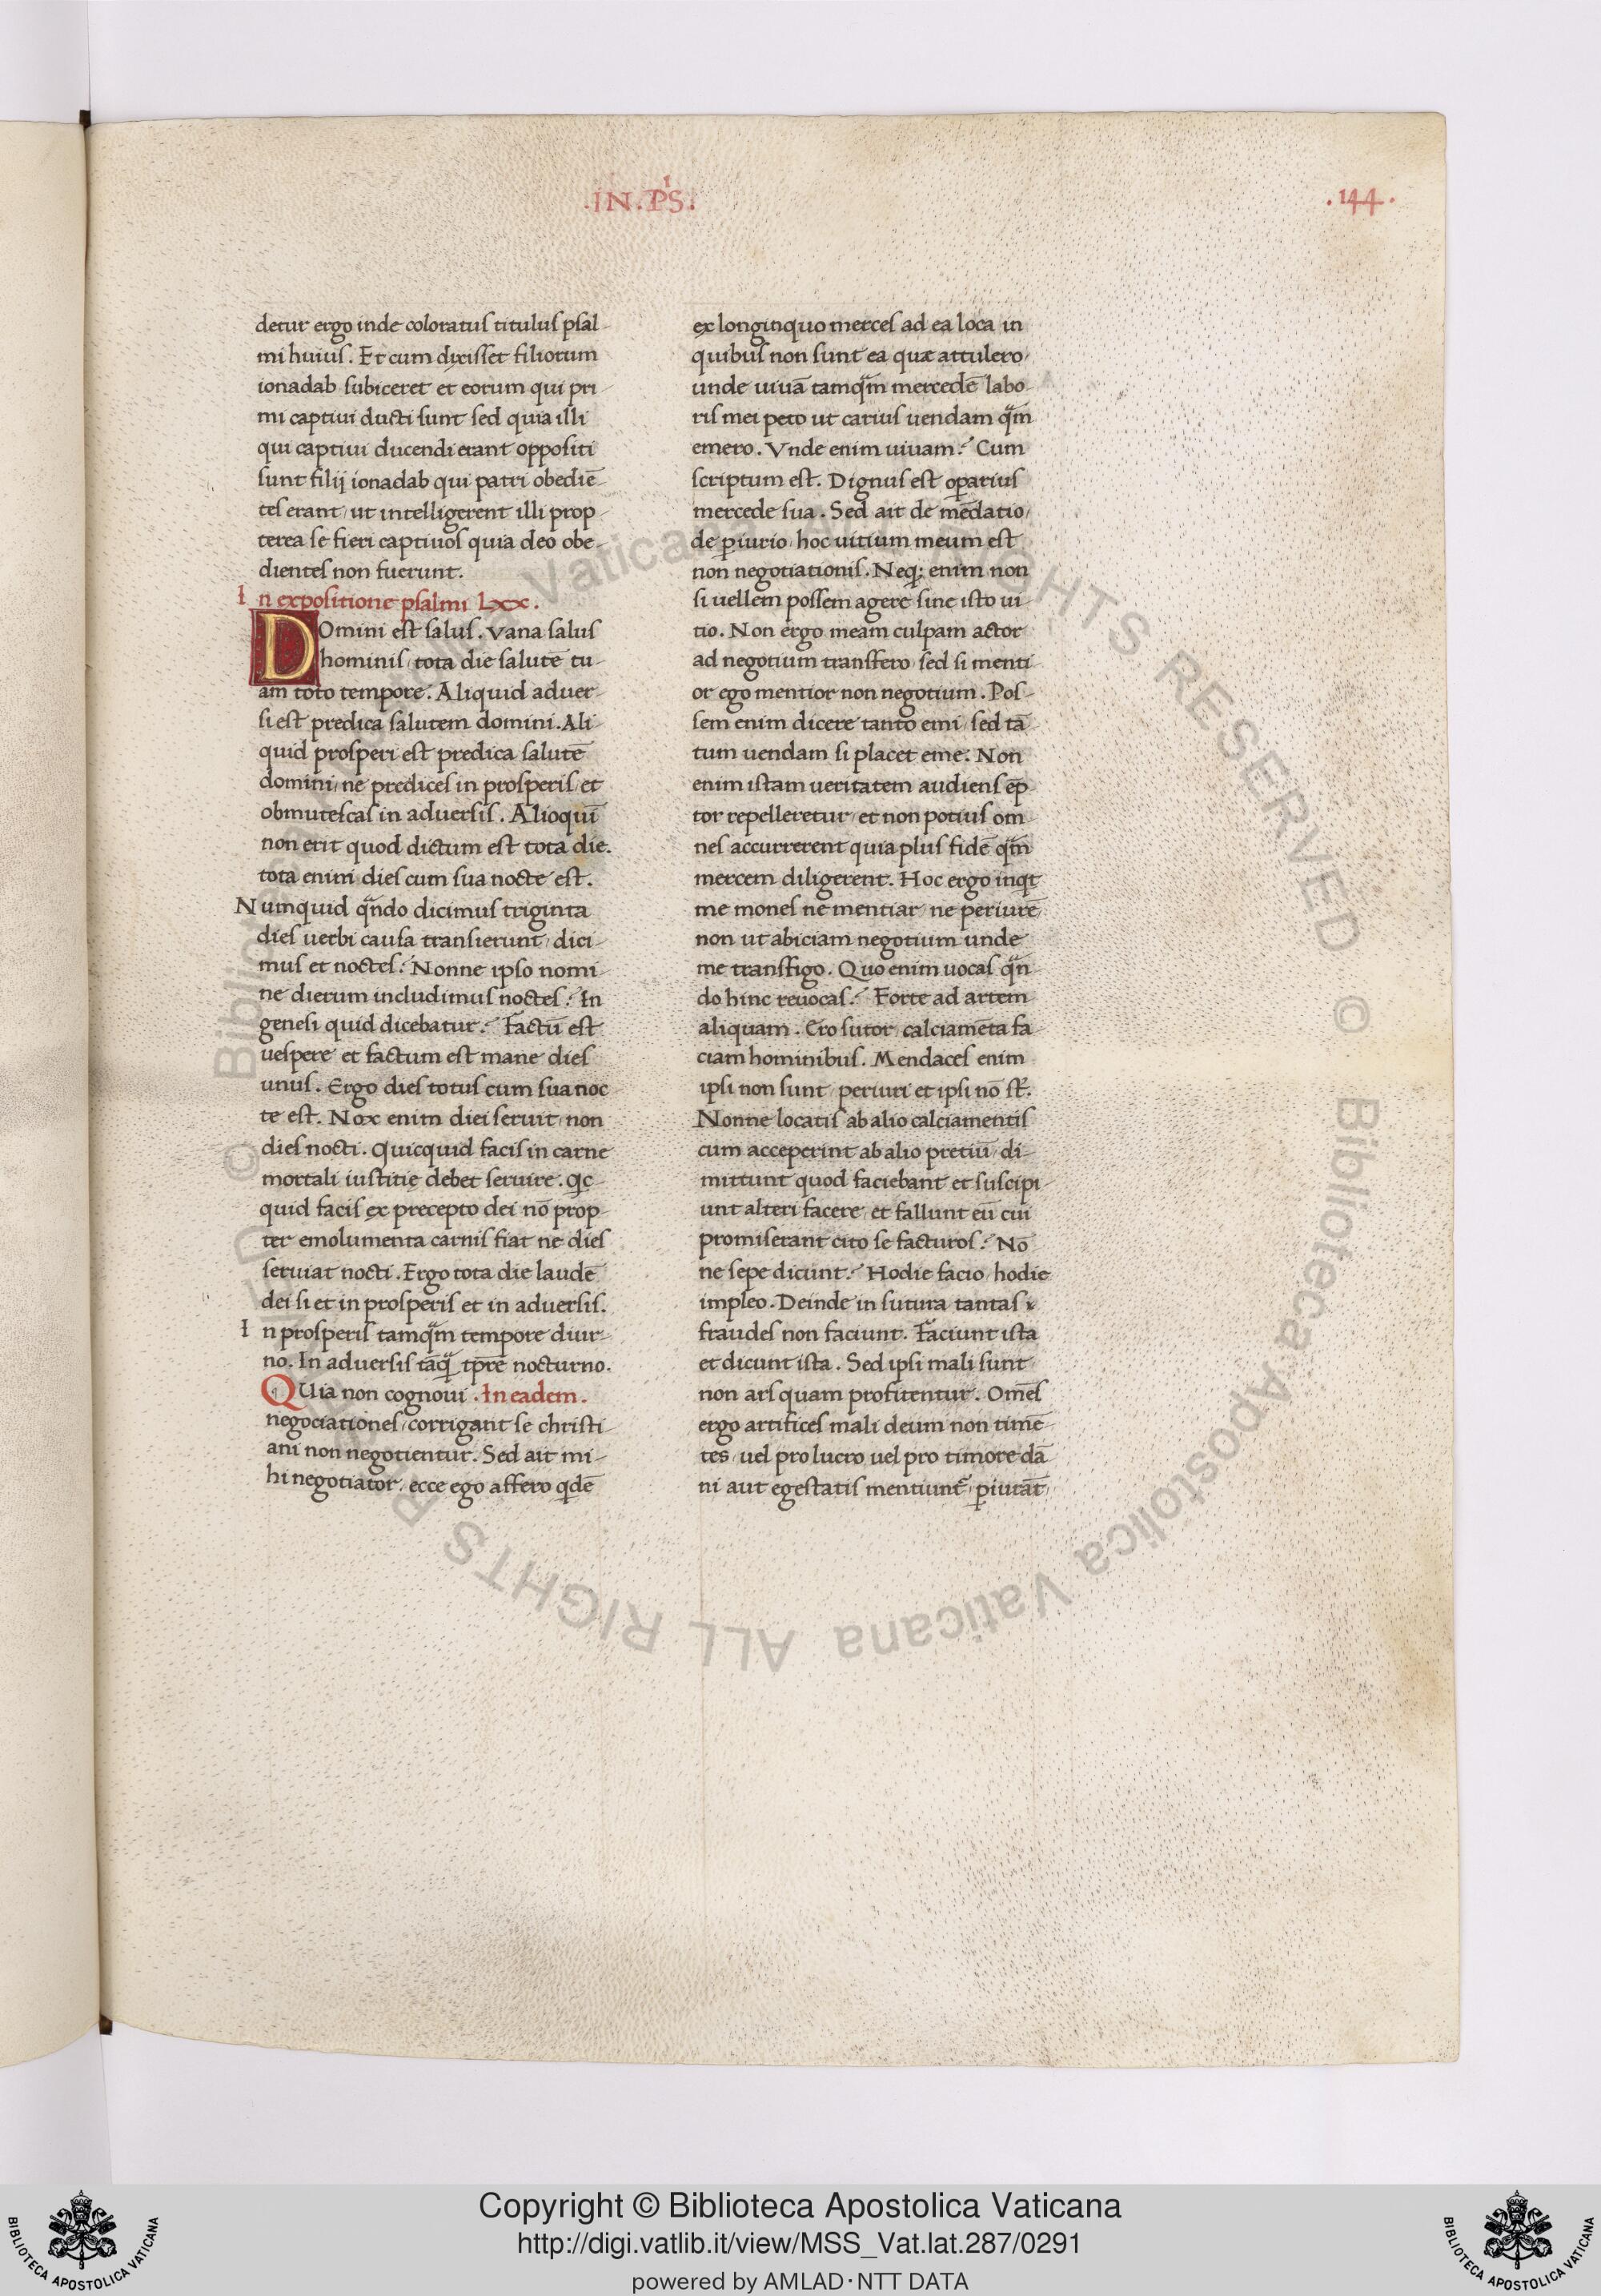 .IN. P͛S.
.144.
detur ergo inde coloratus titulus psal-
mi huius. Et cum dixisset filiorum
ionadab subiceret et eorum qui pri-
mi captiui ducti sunt sed quia illi
qui captiui ducendi erant oppositi
sunt filij ionadab qui patri obediē-
tes erant, ut intelligerent illi prop-
terea se fieri captiuos quia deo obe-
dientes non fuerunt.
In expositione psalmi Lxx.
DOmini est salus. Vana salus
hominis, tota die salutē tu-
am toto tempore. Aliquid aduer-
si est predica salutem domini. Ali-
quid prosperi est predica salutē
domini, ne predices in prosperis, et
obmutescas in aduersis. Alioqui
non erit quod dictum est tota die.
tota enim dies cum sua nocte est.
Numquid qn̄do dicimus triginta
dies uerbi causa transierunt, dici-
mus et noctes? Nonne ipso nomi-
ne dierum includimus noctes? In
genesi quid dicebatur? Factū est
uespere et factum est mane dies
unus. Ergo dies totus cum sua noc
te est. Nox enim diei seruit, non
dies nocti. Quicquid facis in carne
mortali iustitię debet seruire. Qc-
quid facis ex precepto dei nō prop-
ter emolumenta carnis fiat ne dies
seruiat nocti. Ergo tota die laudē
dei si et in prosperis et in aduersis.
In prosperis tamq̄m tempore diur-
no. In aduersis tāq̄ tp̄re nocturno.
QUia non cognoui. In eadem.
negociationes, corrigant se christi-
ani non negotientur. Sed ait mi-
hi negotiator, ecce ego affero qdē
ex longinquo merces ad ea loca in
quibus non sunt ea quæ attulero,
unde uiuā tamq̄m mercedē labo-
ris mei peto ut carius uendam q̄m
emero. Vnde enim uiuam? Cum
scriptum est. Dignus est oꝑarius
mercede sua. Sed ait de mēdatio,
de ꝑiurio, hoc uitium meum est
non negotiationis. Neq; enim non
si uellem possem agere sine isto ui-
tio. Non ergo meam culpam actor
ad negotium transfero, sed si menti-
or ego mentior non negotium. Pos-
sem enim dicere tanto emi, sed tā-
tum uendam si placet eme. Non
enim istam ueritatem audiens ēp-
tor repelleretur, et non potius om-
nes accurrerent quia plus fidē q̄m
mercem diligerent. Hoc ergo inqt
me mones ne mentiar, ne periurē,
non ut abiciam negotium unde
me transfigo. Quo enim uocas qn̄-
do hinc reuocas? Forte ad artem
aliquam. Ero sutor, calciamēta fa-
ciam hominibus. Mendaces enim
ipsi non sunt, periuri et ipsi nō st̄.
Nonne locatis ab alio calciamentis
cum acceperint ab alio pretiū, di-
mittunt quod faciebant et suscipi-
unt alteri facere, et fallunt eū cui
promiserant cito se facturos? Nō-
ne sepe dicunt? Hodie facio, hodie
impleo. Deinde in sutura tantas
fraudes non faciunt. Faciunt ista
et dicunt ista. Sed ipsi mali sunt
non ars quam profitentur. Omēs
ergo artifices mali deum non timē-
tes, uel pro lucro uel pro timore dā-
ni aut egestatis mentiunt᷑, ꝑiurāt,
© Biblioteca Apostolica Vaticana ALL RIGHTS RESERVED
Copyright © Biblioteca Apostolica Vaticana
http://digi.vatlib.it/view/MSS_Vat.lat.287/0291
powered by AMLAD·NTT DATA
BIBLIOTECA APOSTOLICA VATICANA
BIBLIOTECA APOSTOLICA VATICANA